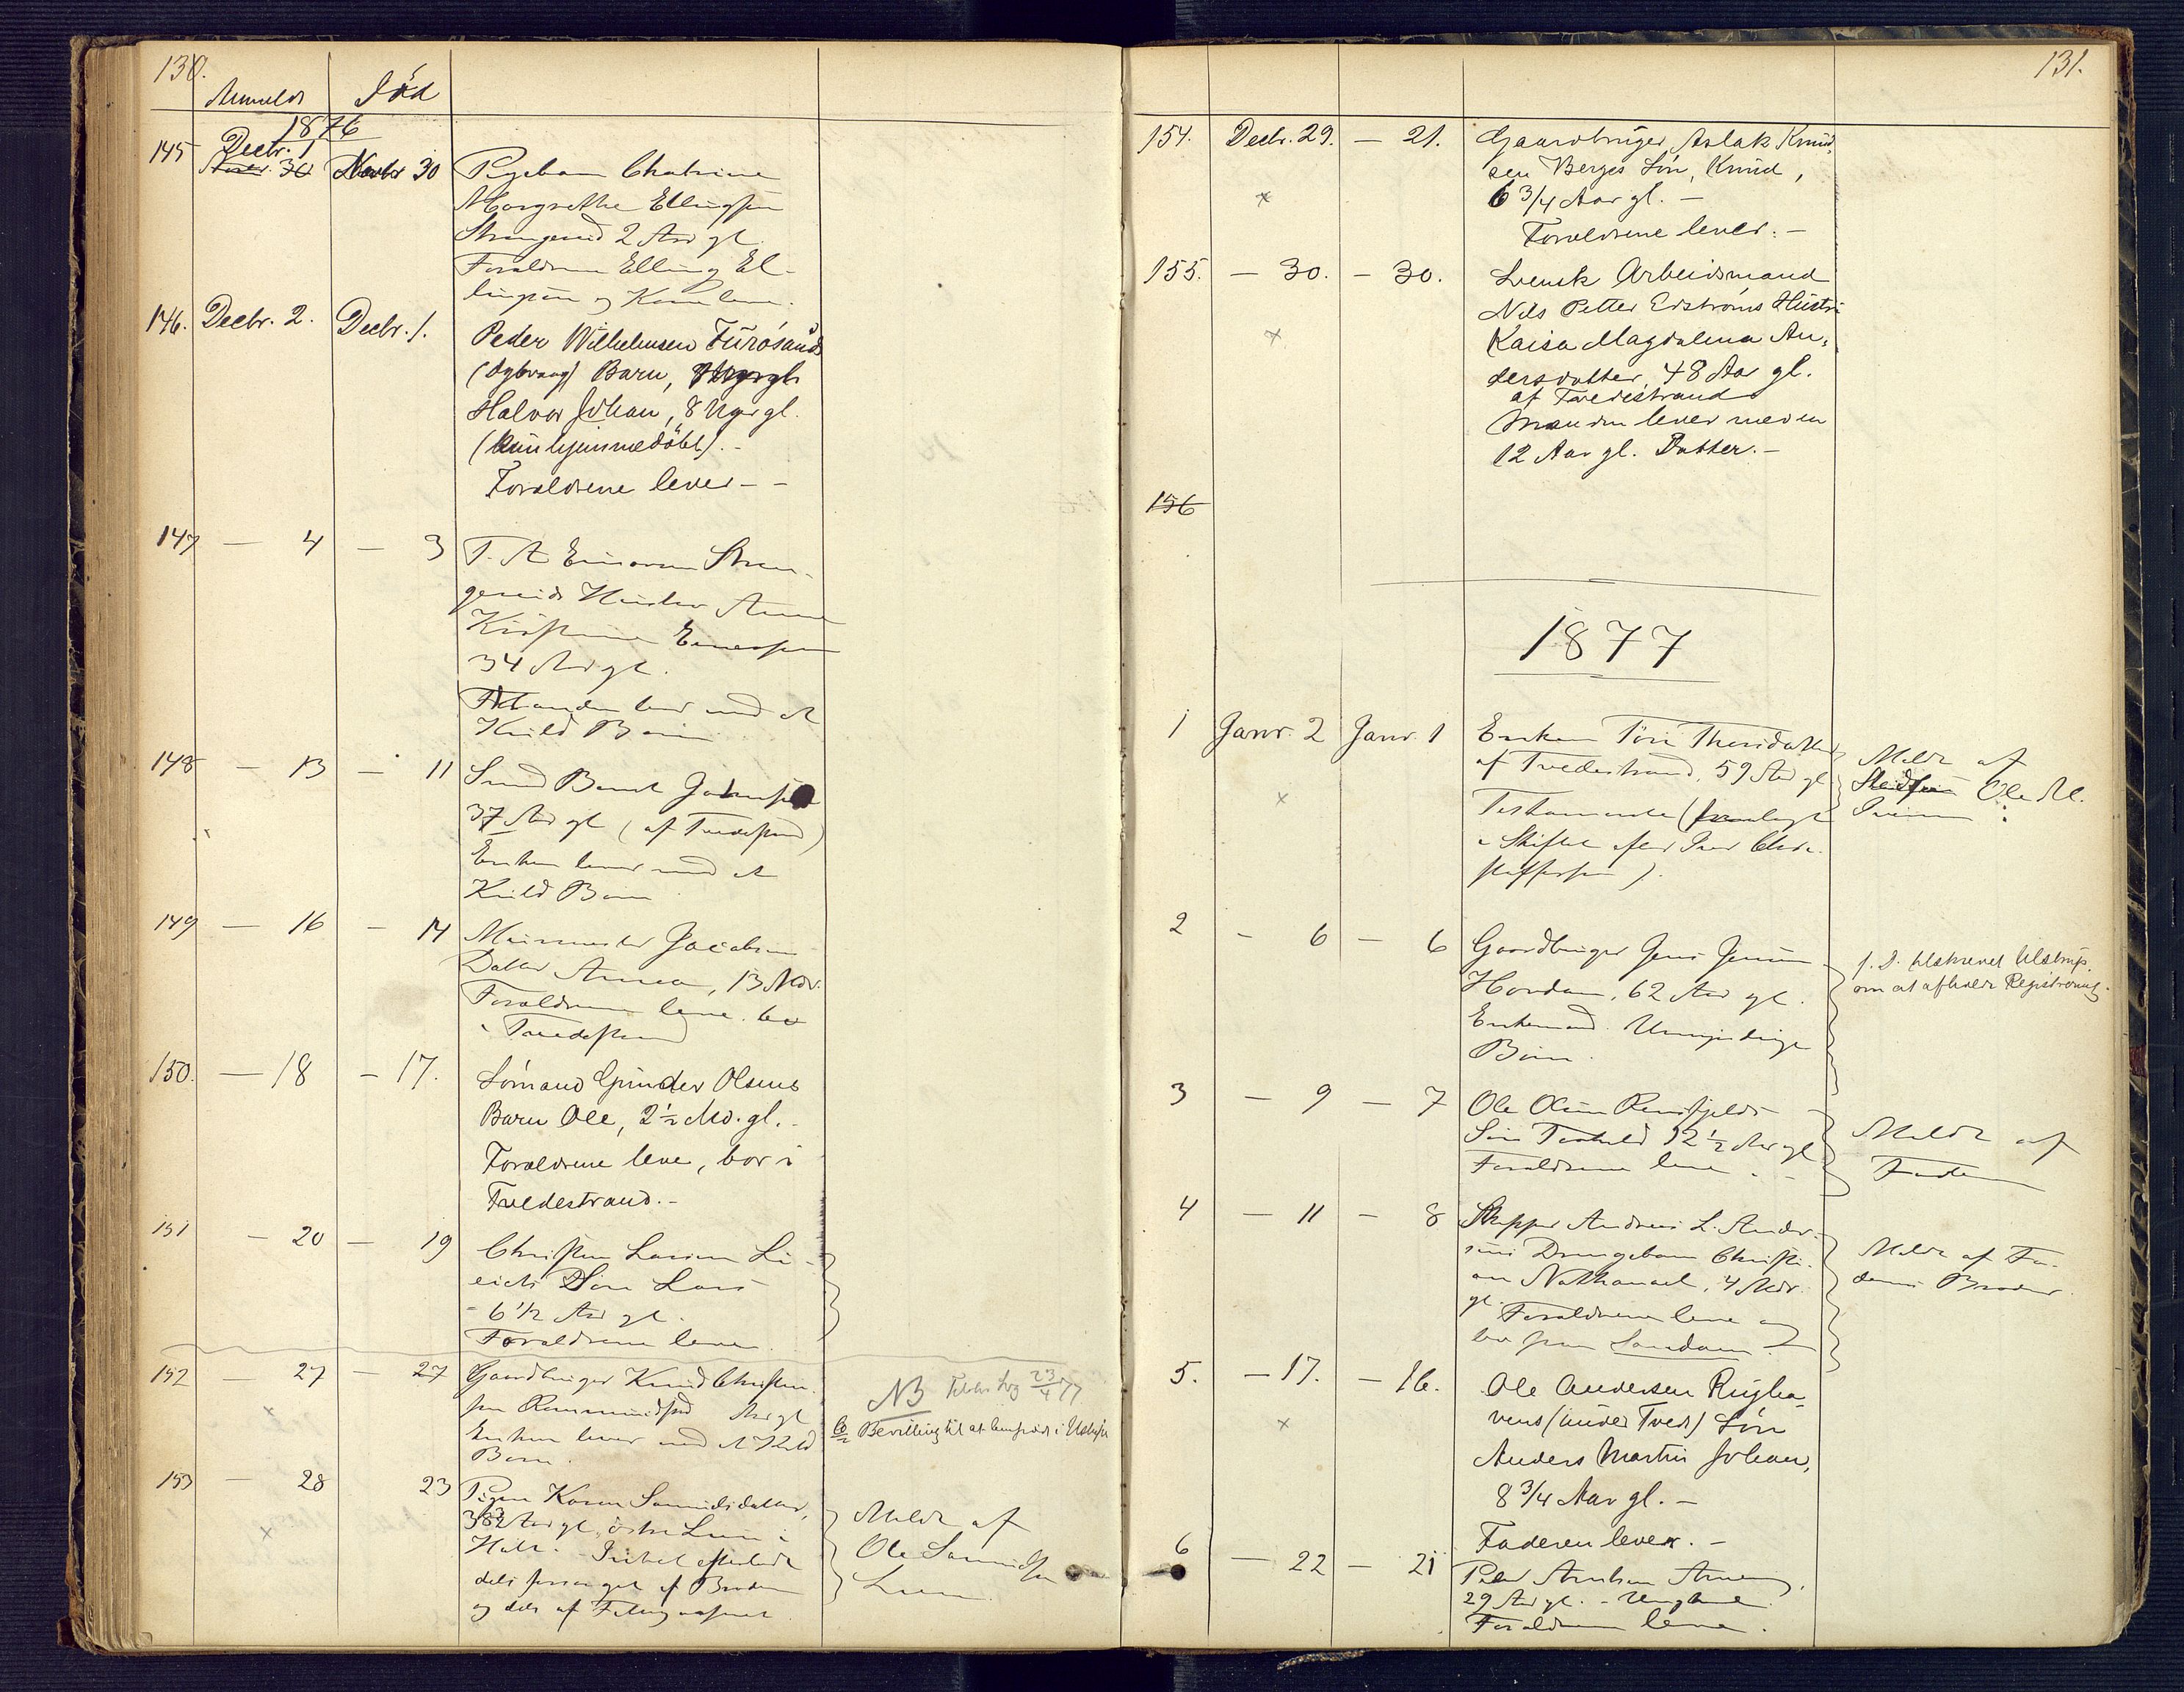 130.
Anmeldt Död
1876
145 Decbr. 1 Novbr. 30 Novbr 30 Pigebarn Chatrine
Margrethe Ellingsen
Strengereid 2 Aar gl.
Forældrene Elling El-
lingsen og Karen leve.
146. Decbr. 2. Decbr. 1. Peder Wilhelmsen Furösunds
Barn,
Halvor Johan, 8 Uger gl.
(kun hjemmedöbt). -
Forældrene lever - -
147 — 4 — 3 T. A. Einersen Stren-
gereids Hustru Anne
Kirstine Einersen
34 Aar gl.
Manden lever med et
Kuld Börn
148 — 13 — 11 Smed Bernt Jahnsen
37 Aar gl (af Tvedestrand)
Enken lever med et
Kuld Börn
149 — 16 — 14 Murmester Jacobsens
Datter Annea, 13 Mdr.
Forældrene leve. bor
i Tvedestrand
150. — 18 — 17. Sömand Gunder Olsens
Barn Ole, 2½ Md. gl. -
Forældrene leve, bor i
Tvedestrand. -
151 — 20 — 19 Christen Larsen Li-
eids Sön Lars
- 6 1/2 Aar gl.
Forældrene leve.
152 — 27 — 27 Gaardbruger Knud Christen-
sen Aar gl
Enken lever med et Kuld
Börn.
NB 23/4 77
Bevilling til at hensidde i Uskiftet
153 — 28 23 Pigen Karen
Aar gl. östre Lunn i
Holt. efterladt
dels af Broderen
og dels af
Meldt af
Ole
Lunn.
131.
154. Decbr. 29. — 21. Gaardbruger Aslak Knud-
sen Berges Sön, Knud,
6 3/4 Aar gl. -
Forældrene lever. -
155. — 30. — 30. Svensk Arbeidsmand
Nils Petter Edströms Hustru
Kaisa Magdalena An-
dersdatter, 48 Aar gl.
af Tvedestrand
Manden lever med en
12 Aar gl. Datter. -
156
1877
1 Janr. 2 Janr. 1 Enken Tóne
af Tvedestrand, 59 Aar gl
Testamente (fremlagt
i Skiftet efter Chri-
stoffersen).
Meldt af
Ole M.
2 — 6 — 6 Gaardbruger Jens Jensen
Hovdan, 62 Aar gl.
Enkemand. Umyndige
Börn.
f. D. tilskrevet Ulstrup
om at afholde Registrering.
3 — 9 — 7 Ole Olsen
Sön Terkild 12 1/2 Aar gl
Forældrene leve.
Meldt af
Faderen
4 — 11 — 8 Skipper Andreas L. Ander-
sens Drengebarn Christi-
an Nathanael, 4 Mdr.
gl. Forældrene leve og
bor paa Sandöen.
Meldt af Fa-
derens Broder.
5. — 17. — 16. Ole Andersen
vens (under Tvedt) Sön
Anders Martin Johan,
8 3/4 Aar gl. -
Faderen lever. -
6 — 22 — 21 Peder
29 Aar gl. - Ungkarl.
Forældrene leve.